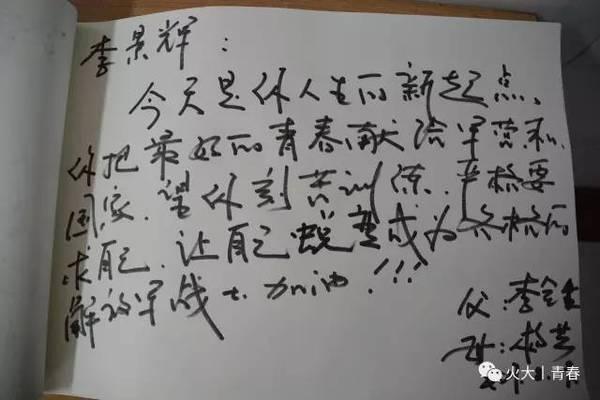 李景辉：
今天是你人生的新起点，
你把最好的青春献给军营和
国家。望你刻苦训练，严格要
求自己，让自己蜕变成为合格的
解放军战士。加油！!!
父：李金
母：杨芝
火大丨青春